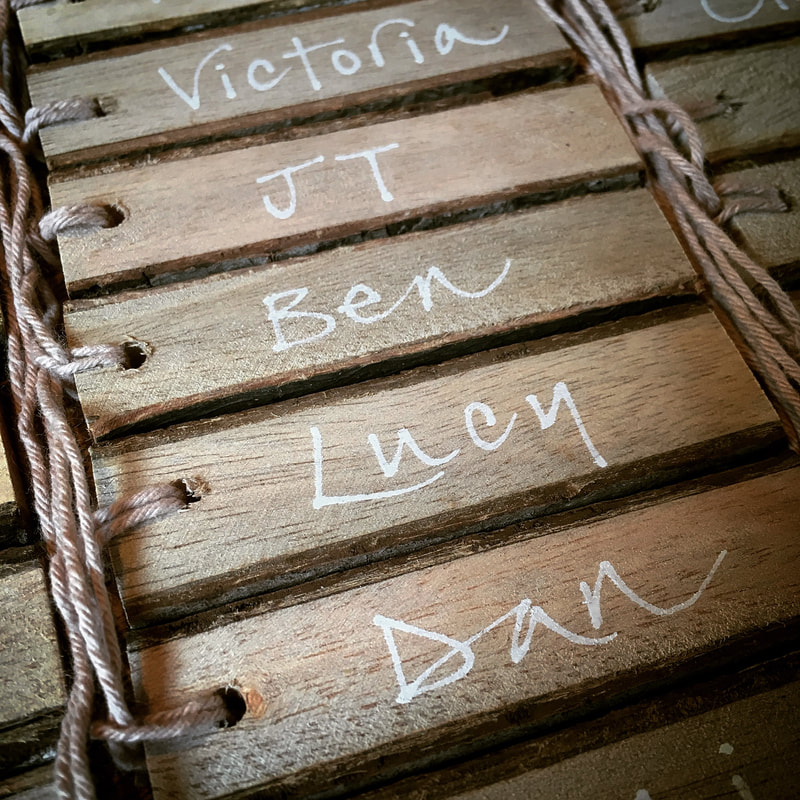 Victoria
JT
Ben
Lucy
Dan